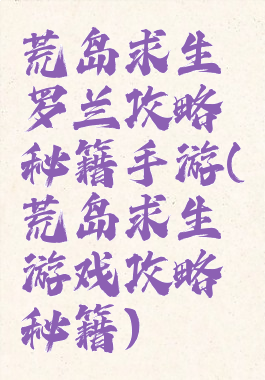 荒岛求生
罗兰攻略
秘籍手游(
荒岛求生
游戏攻略
秘籍)